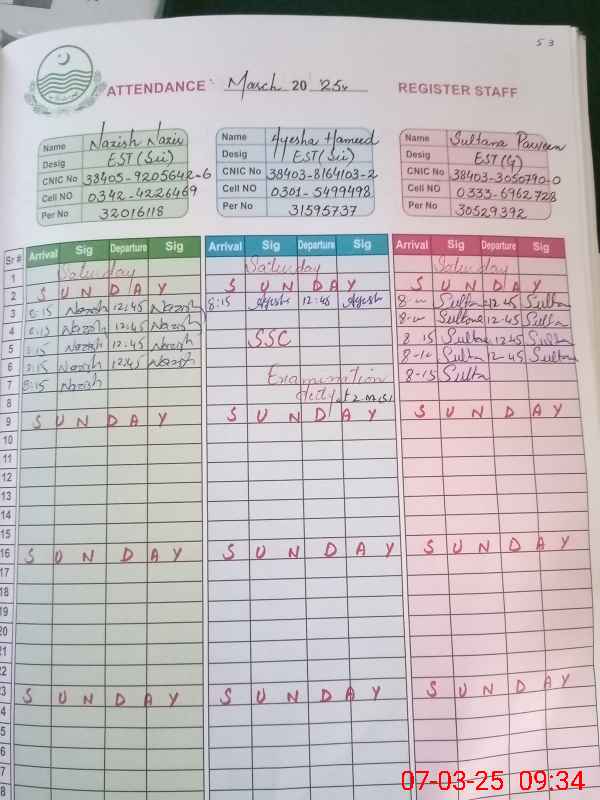 53
ATTENDANCE March 20 25 REGISTER STAFF
Name Nazish Nazir
Desig EST (Sci)
CNIC No 38405-9205642-6
Cell NO 0342-4226469
Per No 32016118
Name Ayesha Hameed
Desig EST (Sci)
CNIC No 38403-8164103-2
Cell NO 0301-5499498
Per No 31595737
Name Sultana Parveen
Desig EST (G)
CNIC No 38403-3050790-0
Cell NO 0333-6962728
Per No 30529392
Sr # Arrival Sig Departure Sig Arrival Sig Departure Sig Arrival Sig Departure Sig
1 Saturday Saturday Saturday
2 S U N D A Y S U N D A Y S U N D A Y
3 8:15 Nazish 12:45 Nazish 8:15 Ayesha 12:45 Ayesha Sultana 12-45 Sultana
4 8:15 Nazish 12:45 Nazish Sultana 12-45 Sultana
5 8:15 Nazish 12:45 Nazish SSC 8-15 Sultana 12-45 Sultana
6 8:15 Nazish 12:45 Nazish Sultana 12-45 Sultana
7 8:15 Nazish Examination 8-15 Sultana
8 duty
9 S U N D A Y S U N D A Y S U N D A Y
10
11
12
13
14
15
16 S U N D A Y S U N D A Y S U N D A Y
17
18
19
20
21
22
23 S U N D A Y S U N D A Y S U N D A Y
4
5
6
7
8
07-03-25 09:34